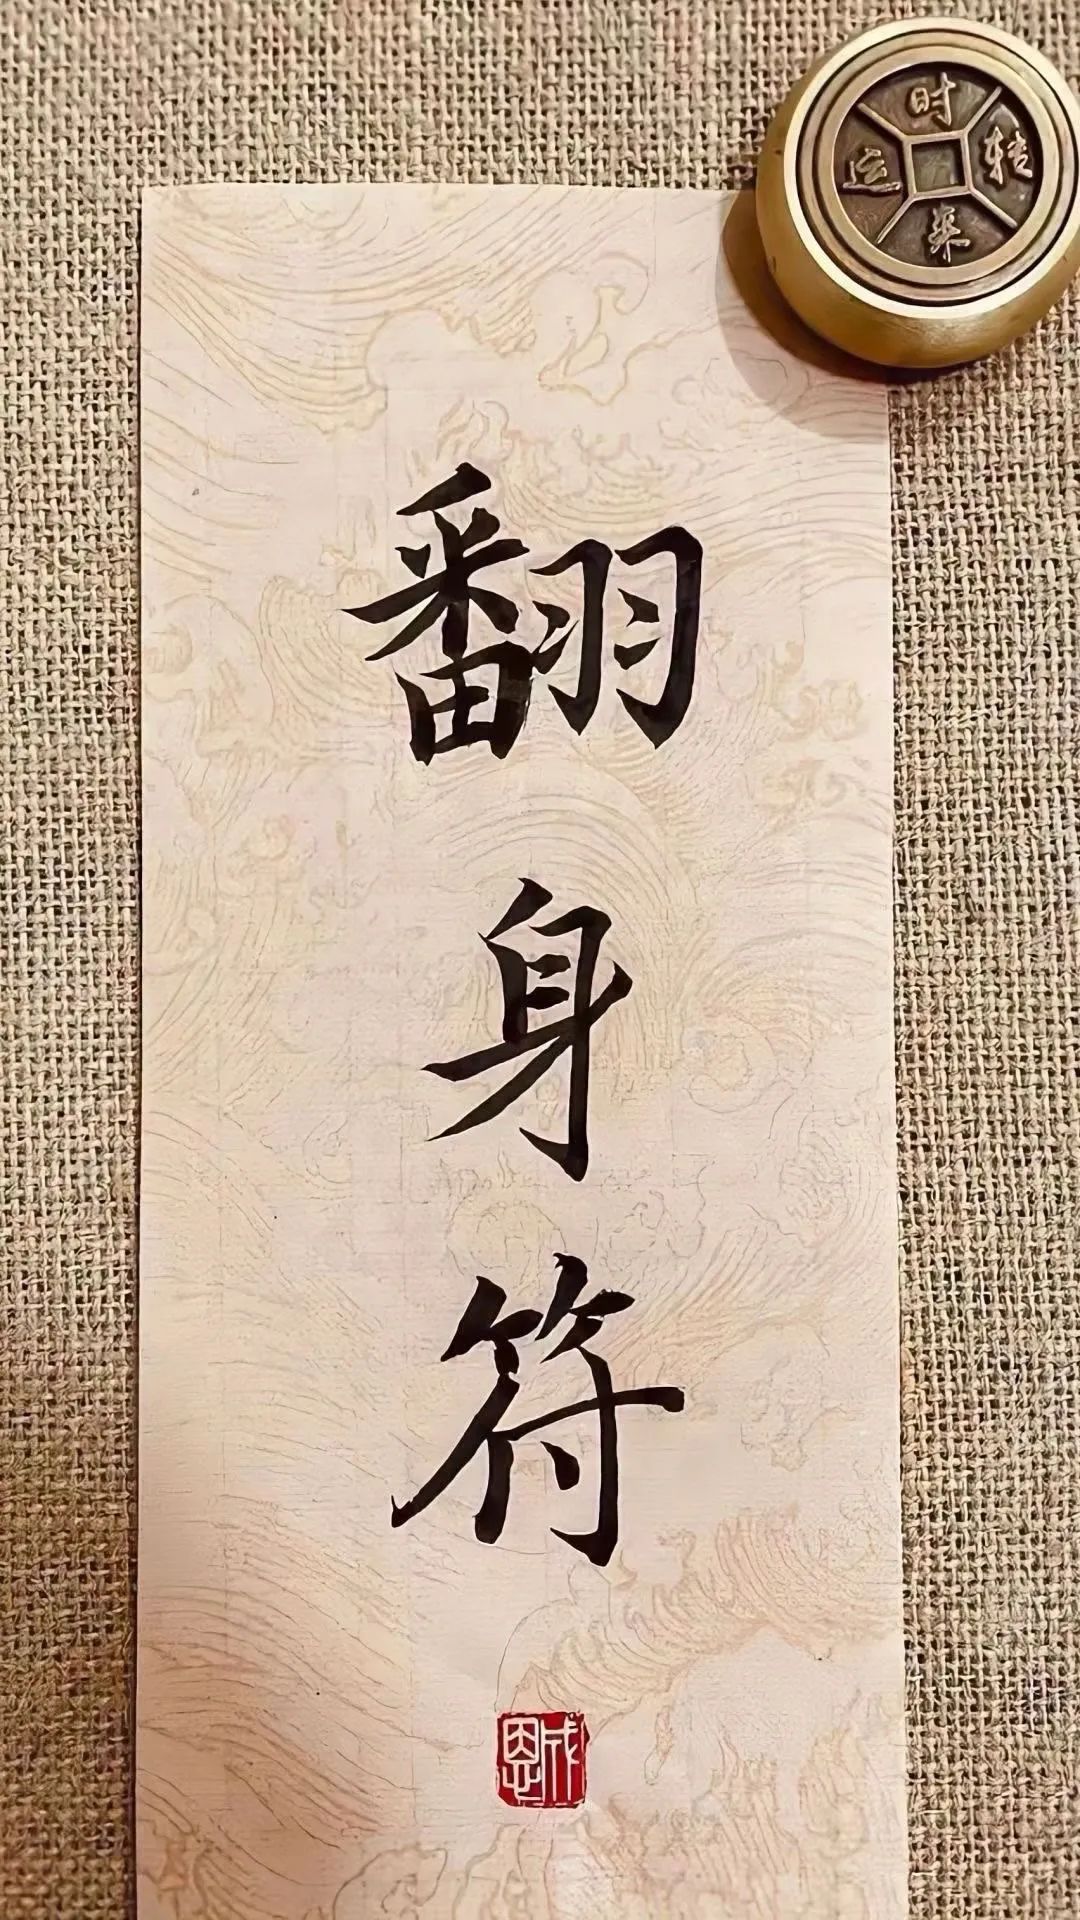 翻身符
时来运转